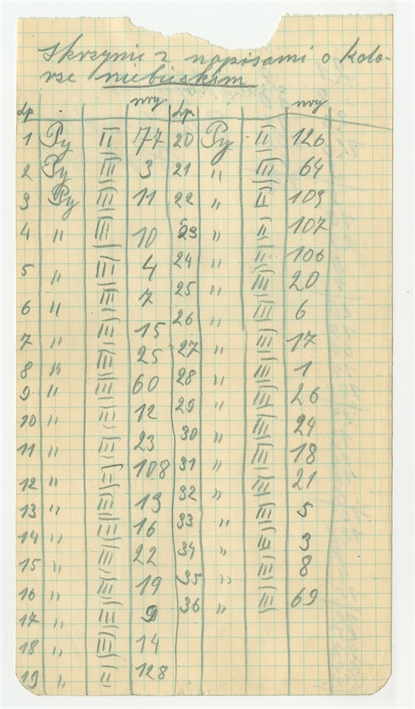 Skrzynie z napisami o kolo-
rze niebieskim
Lp. nry Lp. nry
1 Py II 77 20 Py II 126
2 Py III 3 21 " III 64
3 Py III 11 22 " II 109
4 " III 10 23 " II 107
5 " III 4 24 " II 106
6 " III 7 25 " III 20
7 " III 15 26 " III 6
8 " III 25 27 " III 17
9 " III 60 28 " III 1
10 " III 12 29 " III 26
11 " III 23 30 " III 24
12 " II 108 31 " III 18
13 " III 13 32 " III 21
14 " III 16 33 " III 5
15 " III 22 34 " II 3
16 " III 19 35 " III 8
17 " III 9 36 " III 69
18 " III 14
19 " II 128